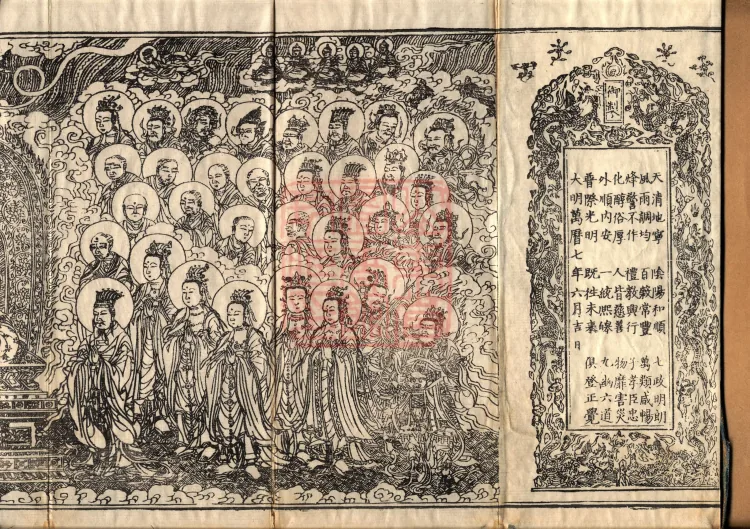 御制
天清地寧　陰陽和順　七政明朗
風雨調均　百穀常豐　萬類咸暢
烽警不作　禮教興行　子孝臣忠
化醇俗厚　人皆慈善　物靡害災
外順內安　一統熙皥　九幽六道
普際光明　既往未來　俱登正覺
大明萬曆七年六月吉日